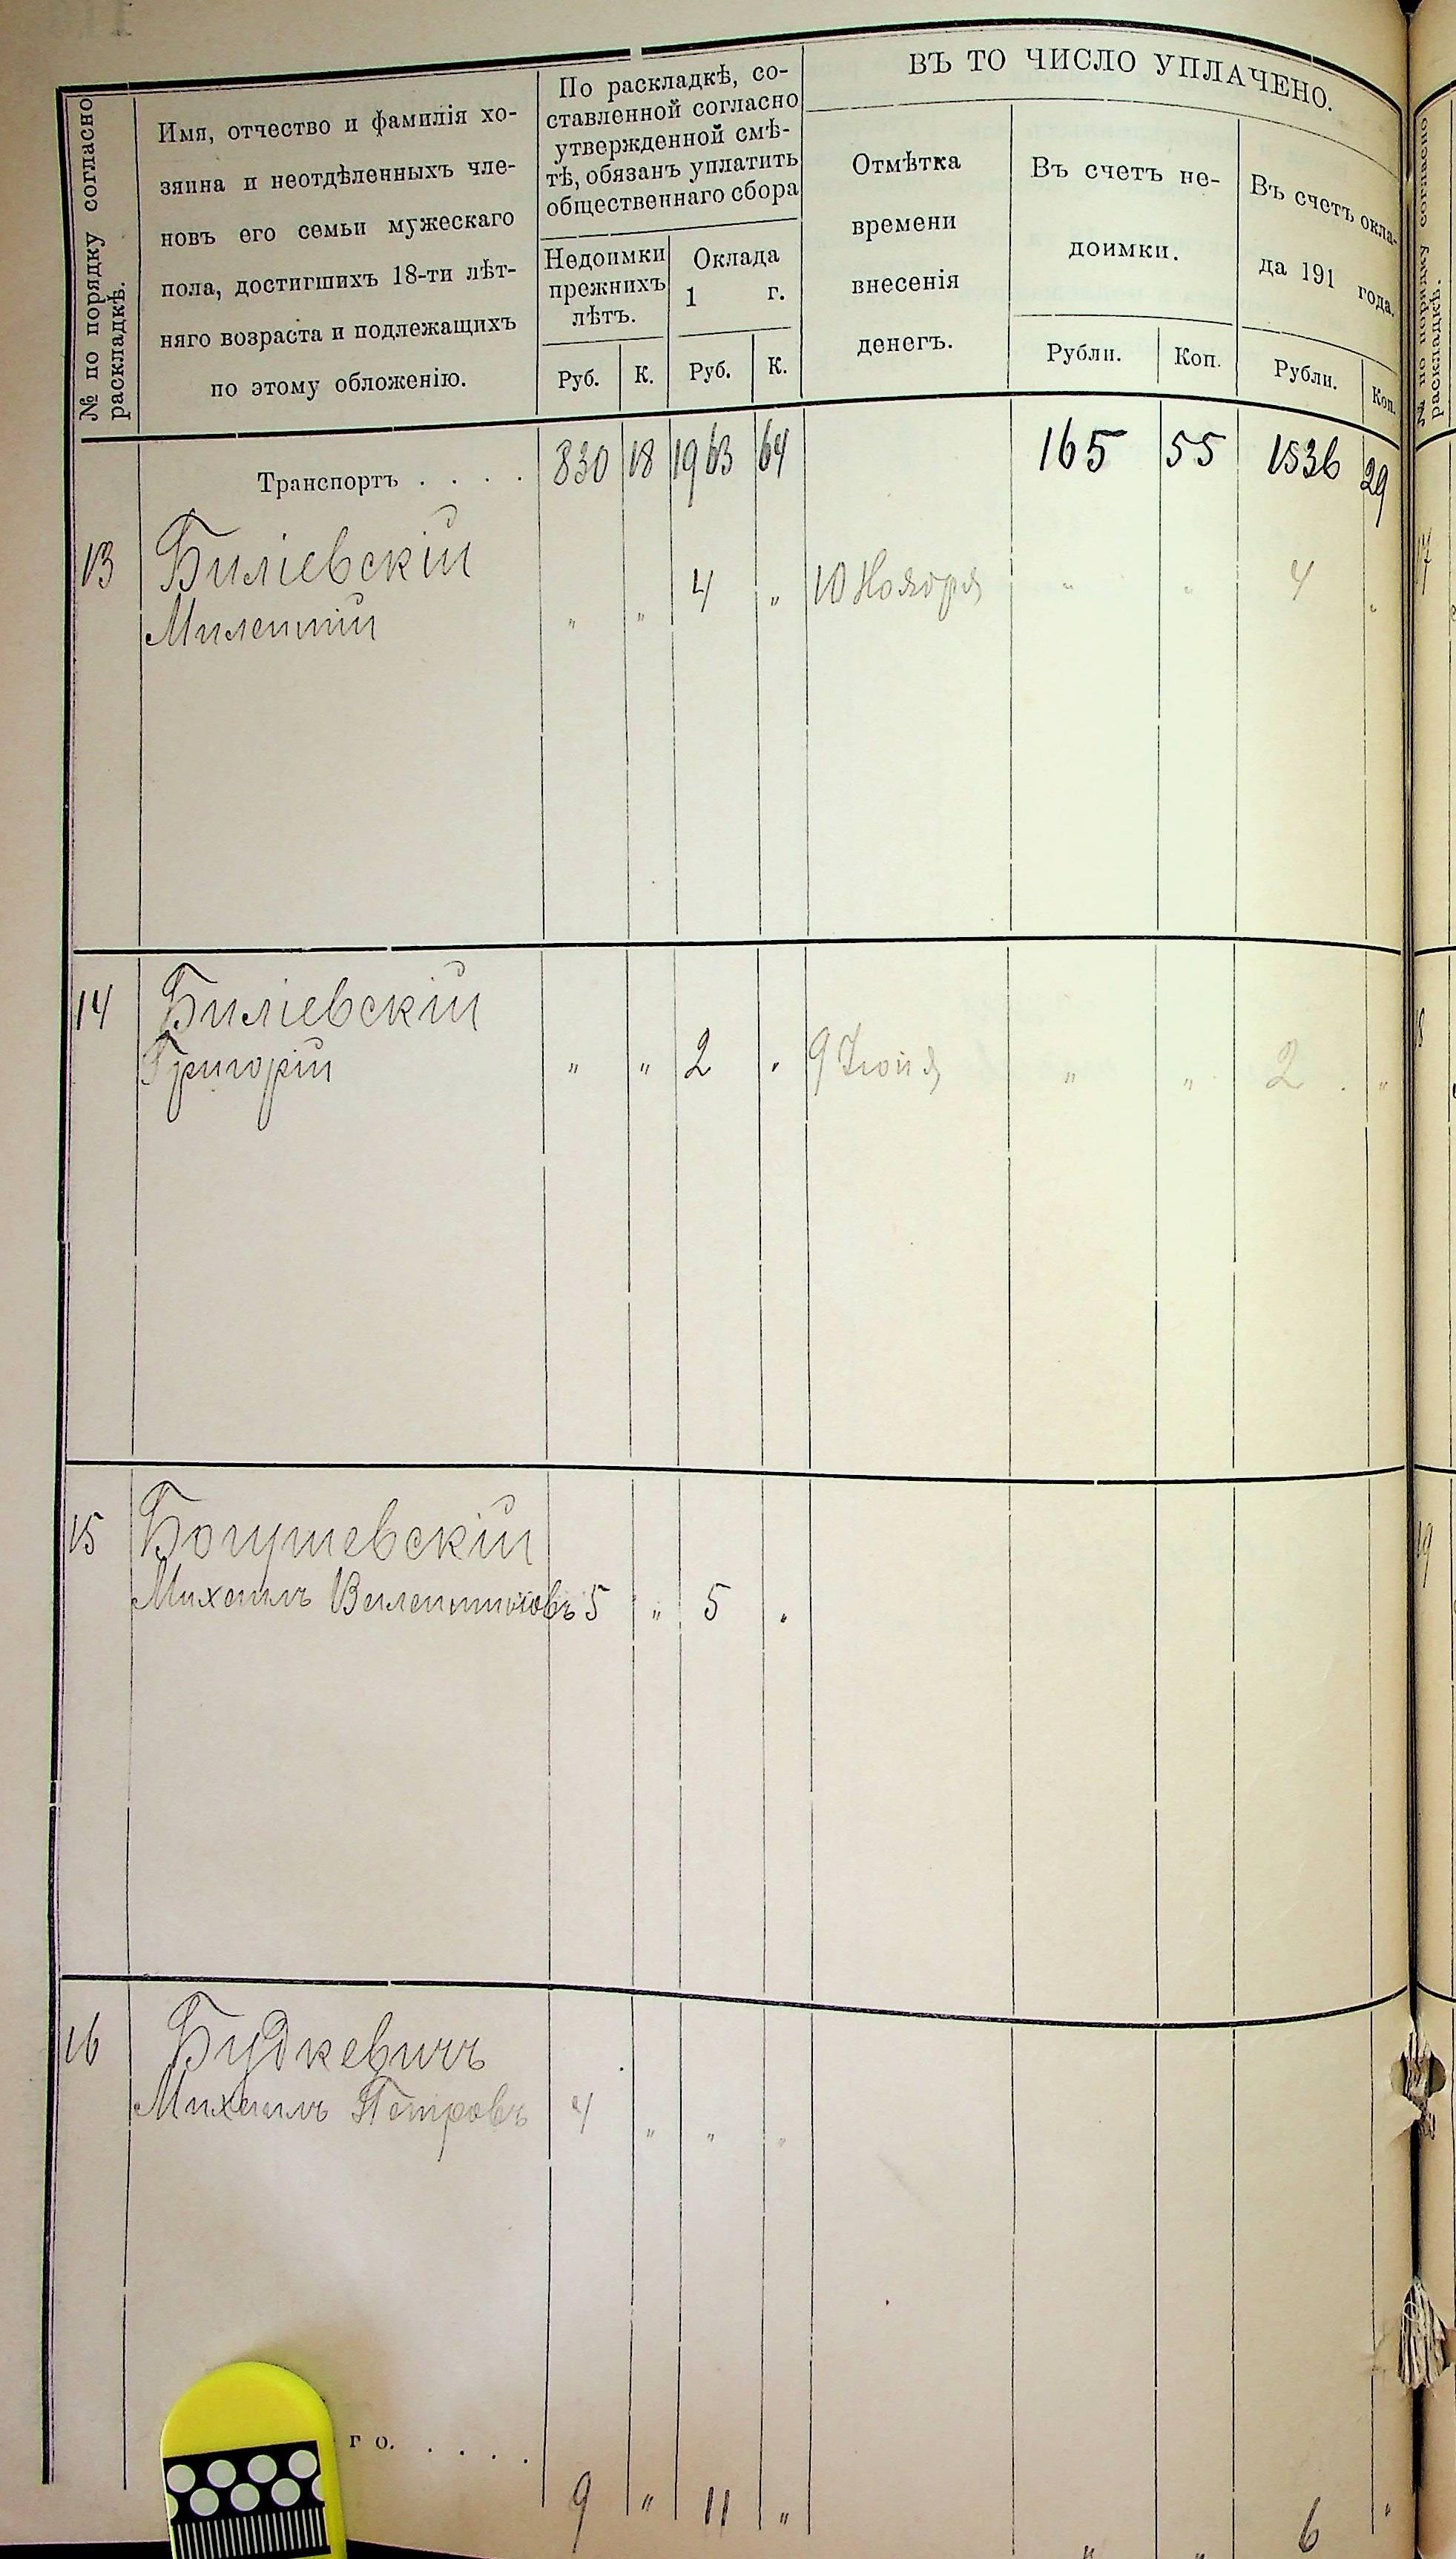 № по порядку согласно
раскладкѣ.
Имя, отчество и фамилія хо-
зяина и неотдѣленныхъ чле-
новъ его семьи мужескаго
пола, достигшихъ 18-ти лѣт-
няго возраста и подлежащихъ
по этому обложенію.
По раскладкѣ, со-
ставленной согласно
утвержденной смѣ-
тѣ, обязанъ уплатить
общественнаго сбора
Недоимки
прежнихъ
лѣтъ.
Оклада
1 г.
Руб. К. Руб. К.
ВЪ ТО ЧИСЛО УПЛАЧЕНО.
Отмѣтка
времени
внесенія
денегъ.
Въ счетъ не-
доимки.
Рубли. Коп.
Въ счетъ окла-
да 191 года.
Рубли. Коп.
Транспортъ . . . . 830 18 1963 64 165 55 1536 29
13 Биліевскій
Милентій " " 4 " 10 Ноября " " 4 "
14 Биліевскій
Григорій " " 2 " 9 Іюня " " 2 . "
15 Богушевскій
Михаилъ Валентиновъ 5 " 5 "
16 Будкевичъ
Михаилъ Петровъ 4 " " "
го. . . . .
9 " 11 " " " 6 "
№ по порядку согласно
раскладкѣ.